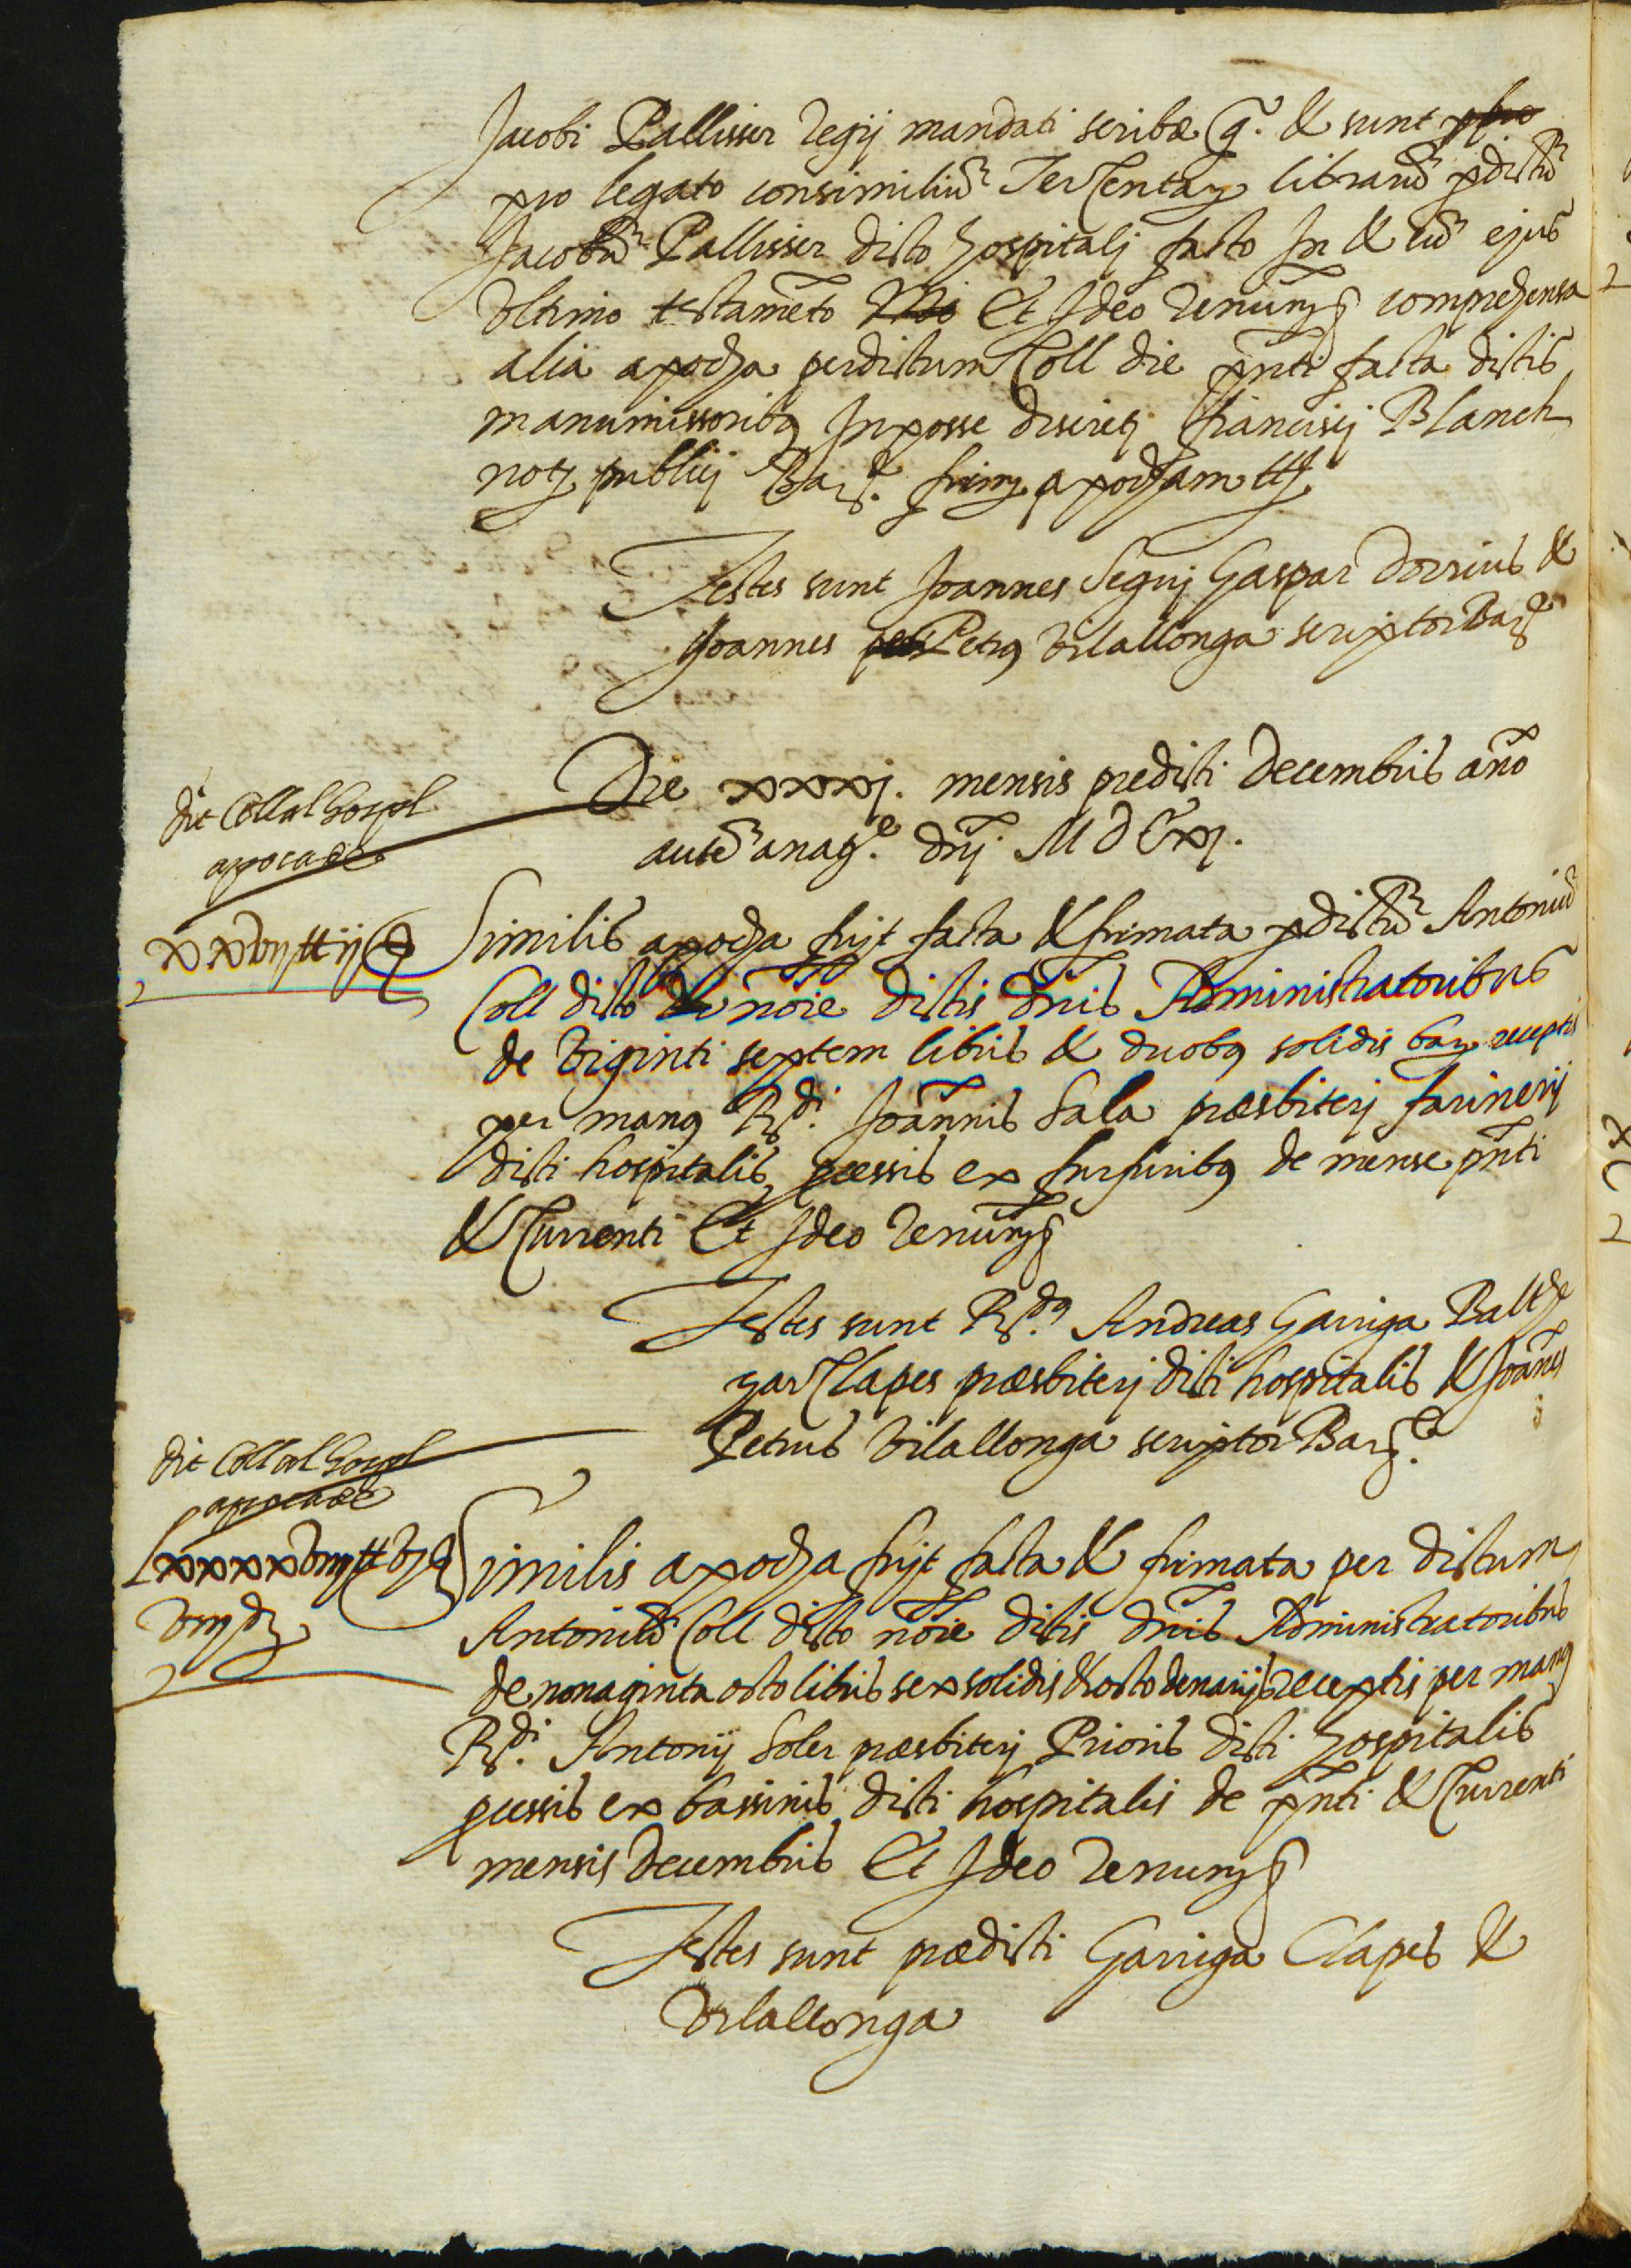 Jacobi Pallisser Regij mandati scribæ q.° & sunt
pro legato consimiliũ Tercentaꝝ librarũ p̱dictũ
Jacobũ Pallisser dicto hospitalj facto In & cũ ejus
Vltimo testamẽto Et Ideo Renũnꝫ comprehensa
alia apocha per dictum Coll die p̃nti facta dictis
manumissoribꝰ In posse discretj francisij Blanch
notꝫ publicj Barꝫ.e firmꝫ apocham
Testes sunt Joannes Seguj Gaspar Dorrius &
Joannes Petrꝰ Vilallonga scriptor Barꝫe
Die xxxj. mensis predicti Decembris año
autẽ anatꝫ.e dñj M D C xj.
dit Coll al hospl
apoca de
xxvij ll ij ß
Similis apocha fuyt facta & firmata p̱ dictũ Antoniũ
Coll dicto nõie dictis dñis Administratoribus
de Viginti septem libris & duobꝰ solidis barꝫ receptis
per manꝰ Rꝫ.di Joannis Sala præsbiterj farinerij
dicti hospitalis ꝓcessis ex furfuribꝰ de mense p̃nti
& Currenti Et Ideo Renũnꝫ
Testes sunt Rꝫ.dꝰ Andreas Garriga Balthe
zar Clapes præsbiterj dicti hospitalis & Joanes
Petrus Vilallonga scriptor Barꝫ.e
dit Coll al hospl
apoca de
Lxxxxviij ll vj ß
viij dꝫ
Similis apocha fuyt facta & firmata per dictum
Antoniũ Coll dicto nõie dictis dñis Administratoribus
de nonaginta octo libris sex solidis & octo denarijs receptis per manꝰ
Rꝫ.di Antonij Soler præsbiterj Prioris dicti hospitalis
ꝓcessis ex bassinis dicti hospitalis de p̃nti & Currenti
mensis Decembris Et Ideo Renunꝫ
Testes sunt prædicti Garriga Clapes &
Vilallonga